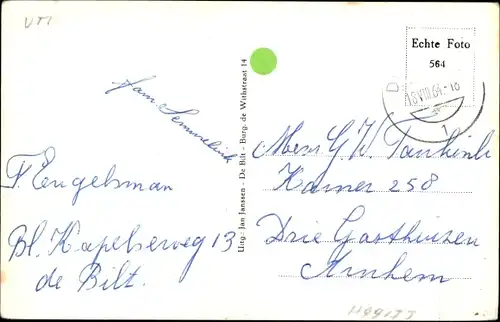 Echte Foto
564
18 VIII 64.-18
1
Fam. Semmelink
F. Engelsman
Bl. Kapelseweg 13
de Bilt.
Uitg: Jan Janssen - De Bilt - Burg. de Withstraat 14
Mevr G W
Kamer 258
Drie Gasthuizen
Arnhem